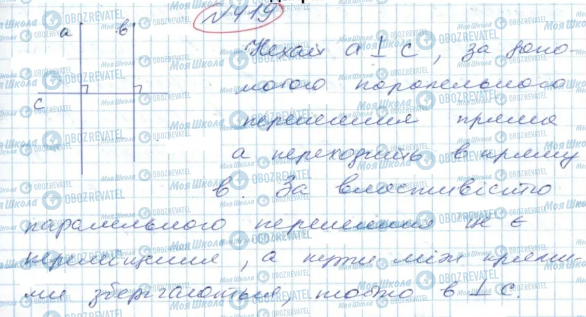 №419
a b
Нехай a ⊥ c, за допо-
могою паралельного
c
перенесення пряма
a переходить в пряму
в. За властивістю
паралельного перенесення це є
переміщення, а кути між прями-
ми зберігаються, тобто в ⊥ c.